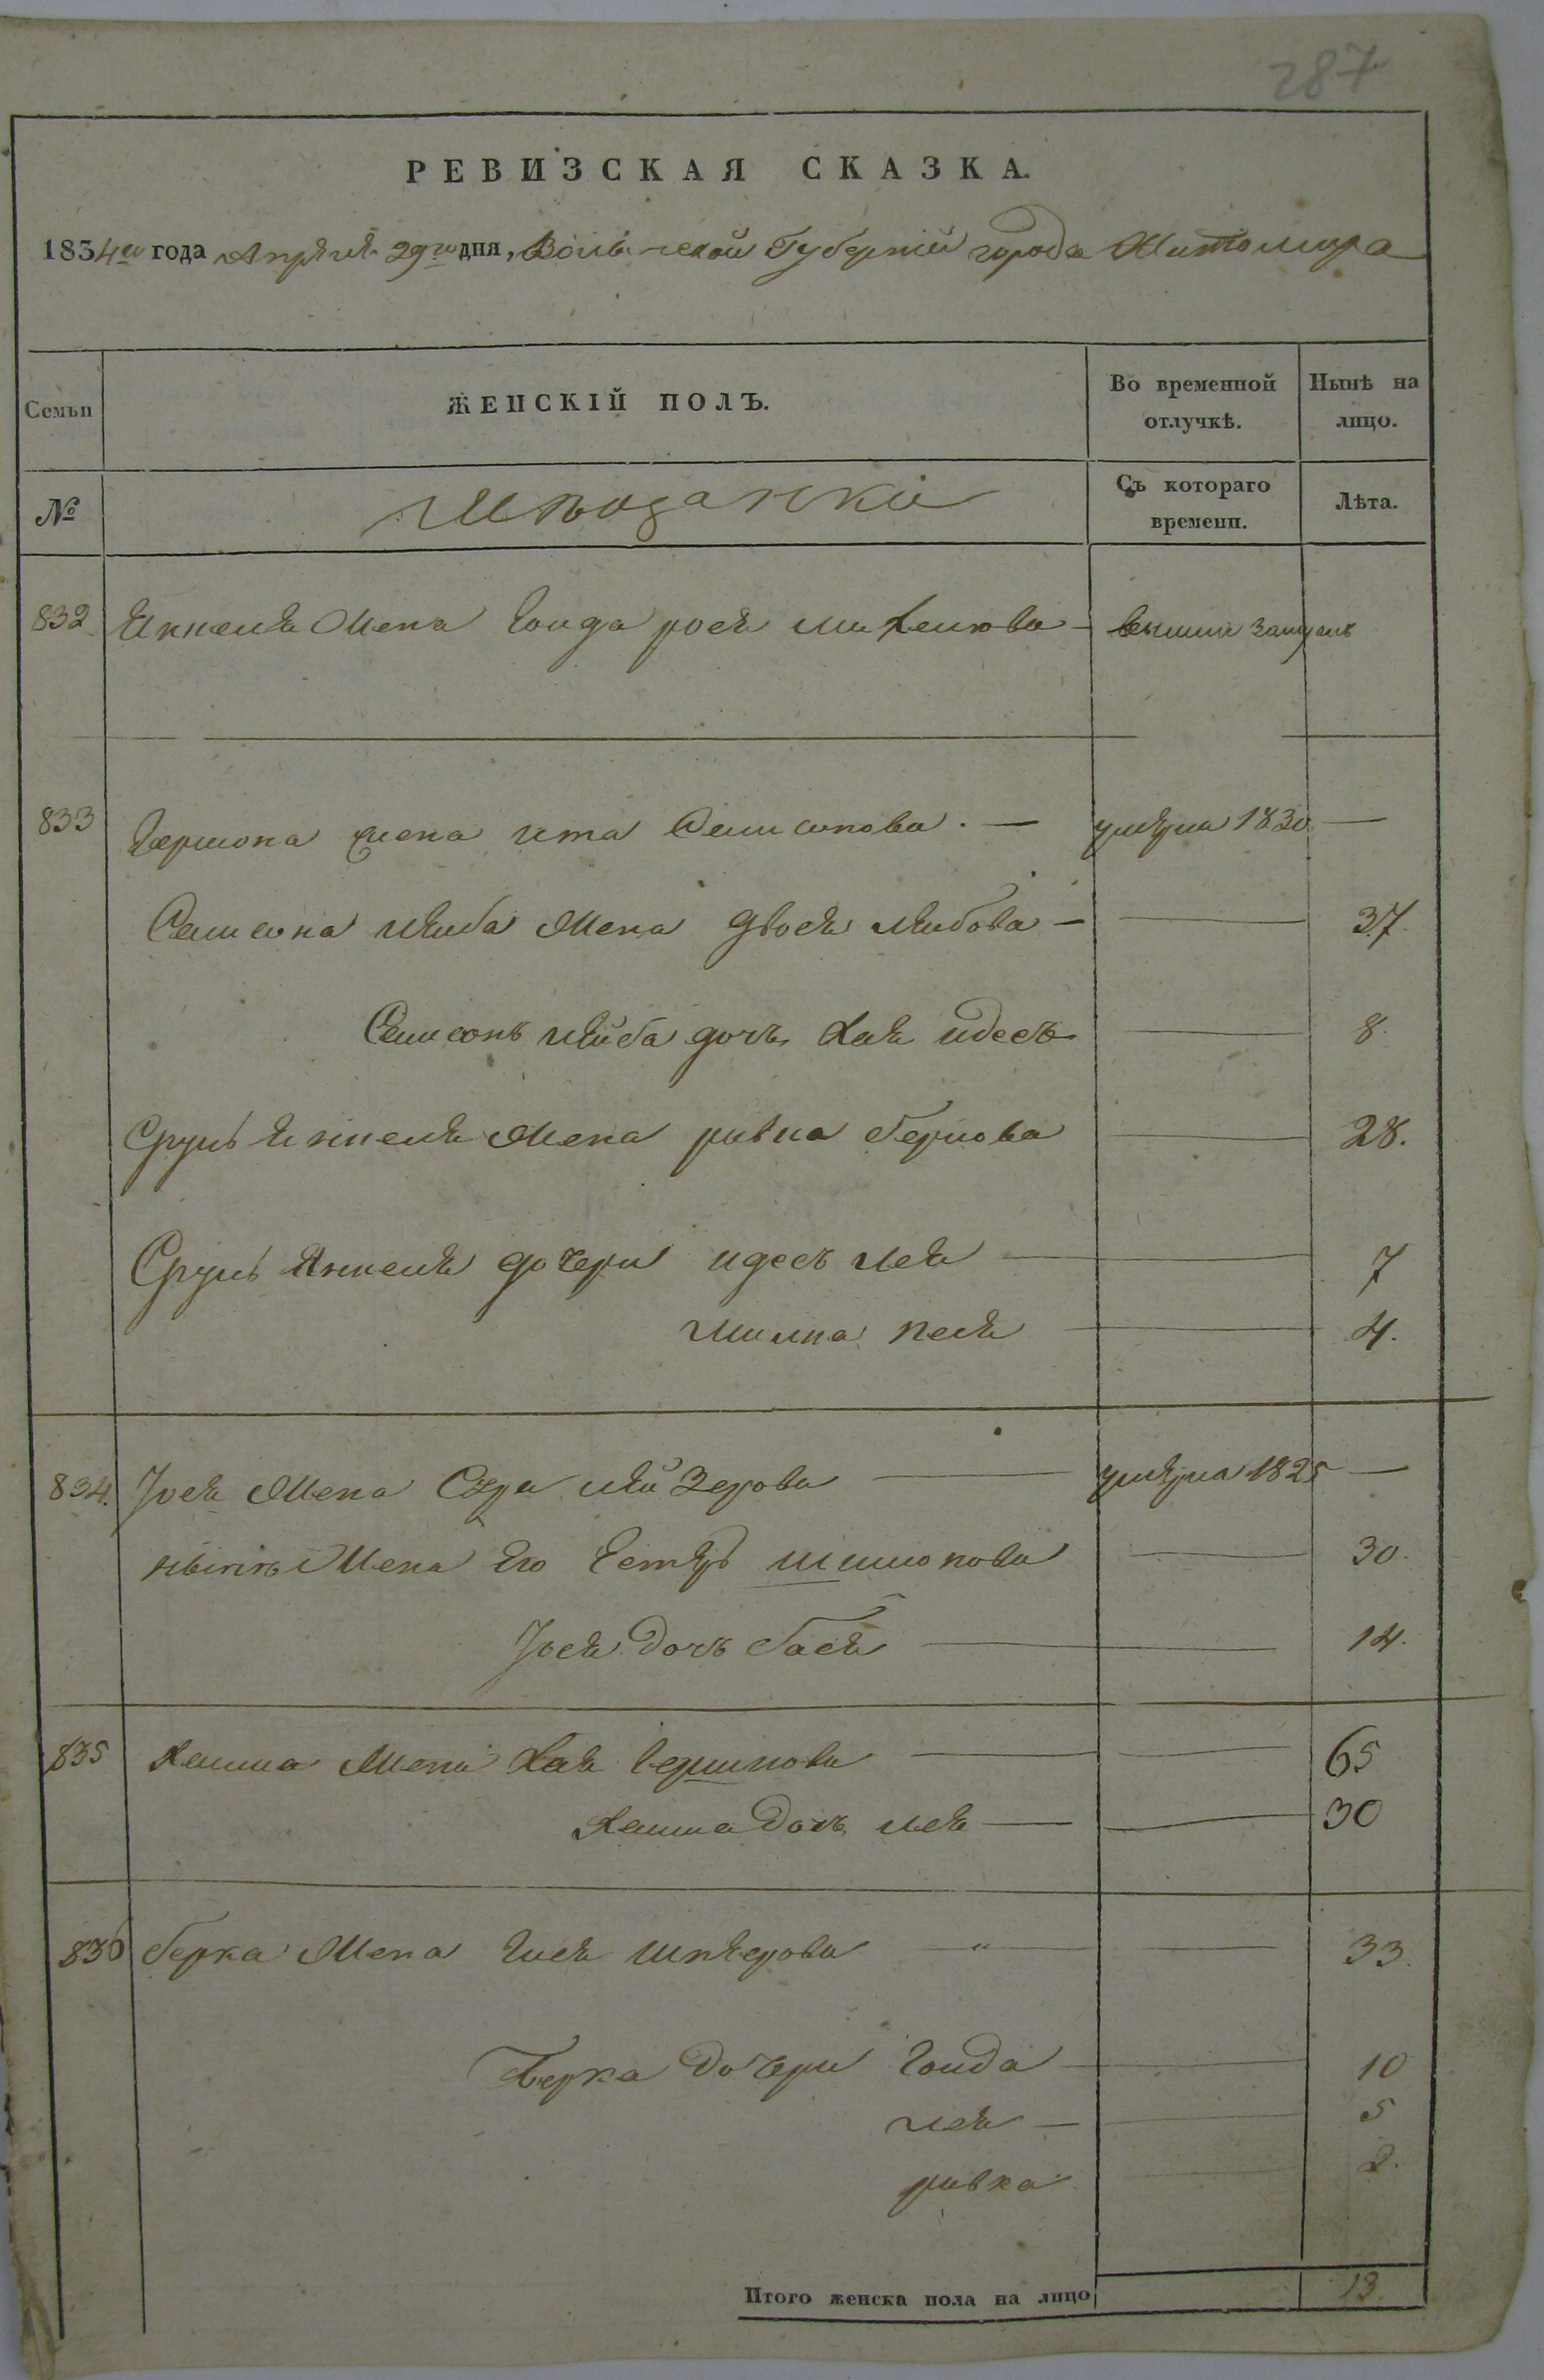 287
РЕВИЗСКАЯ СКАЗКА.
1834го года Апреля 29го дня, Волынской Губернии города Житомира
Семьи ЖЕНСКІЙ ПОЛЪ. Во временной отлучкѣ. Нынѣ на лицо.
№ Мѣщанки Съ котораго времени. Лѣта.
832 Янкеля Жена Голда рося вышла замужъ
833 Гершона жена ита Семионова. — умерла 1830 —
Семиона лейба Жена двося лейбова — — 37.
Семионъ лейба дочь хая идесъ — 8.
Сруль Янкеля Жена ривка беркова — 28.
Сруль Янкеля дочери идесъ лея — 7
песя — 4.
834. Іося Жена Сура лейзерова — умерла 1825 —
нынѣ Жена Его Естеръ шимонова — 30.
Іося дочь бася — 14.
835 Жена хая — 65
дочь лея — 30
836 берка Жена — 33.
берка дочери Голда — 10
лея — 5
ривка — 2.
Итого женска пола на лицо 13